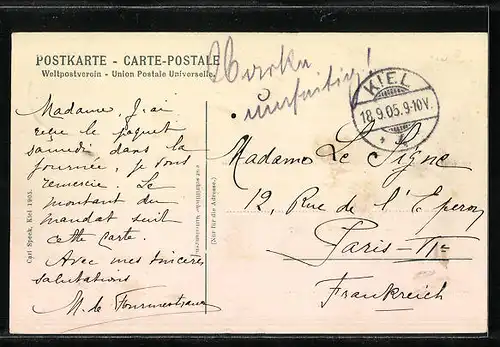 POSTKARTE - CARTE-POSTALE
Weltpostverein - Union Postale Universelle
Marke
umseitig!
KIEL
18.9.05.9-10V.
Madame, J'ai
reçu le paquet
samedi dans la
journée, je vous
remercie. Le
montant du
mandat suit
cette carte.
Avec mes sincères
salutations
M. de
Madame Le Signe
12, Rue de l'Eperon
Paris - VIe
Frankreich
Carl Speck, Kiel 1905.
(Nur für die Adresse.)